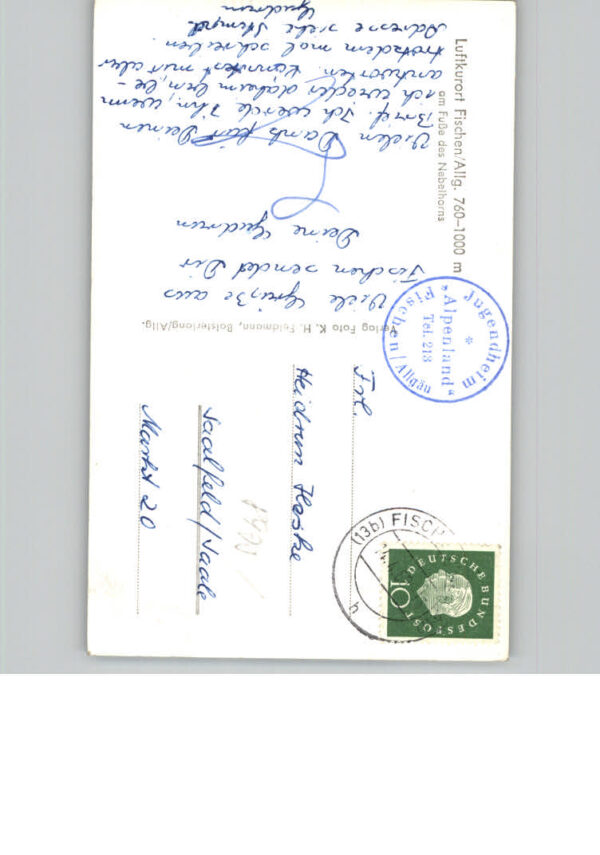 Luftkurort Fischen/Allg. 760–1000 m
am Fuße des Nebelhorns
Vielen Dank für Deinen
Brief. Ich werde ihn, wenn
ich wieder daheim bin, be-
antworten. Kannst mir aber
trotzdem mal schreiben.
Adresse siehe Stempel.
Gudrun
Viele Grüße aus
Fischen sendet Dir
Deine Gudrun
Verlag Foto K. H. Feldmann, Bolsterlang/Allg.
Jugendheim
„Alpenland“
Tel. 213
Fischen/Allgäu
(13b) FISCH
DEUTSCHE BUNDESPOST
10
Frl.
Heidrun Heske
Saalfeld/Saale
Markt 20